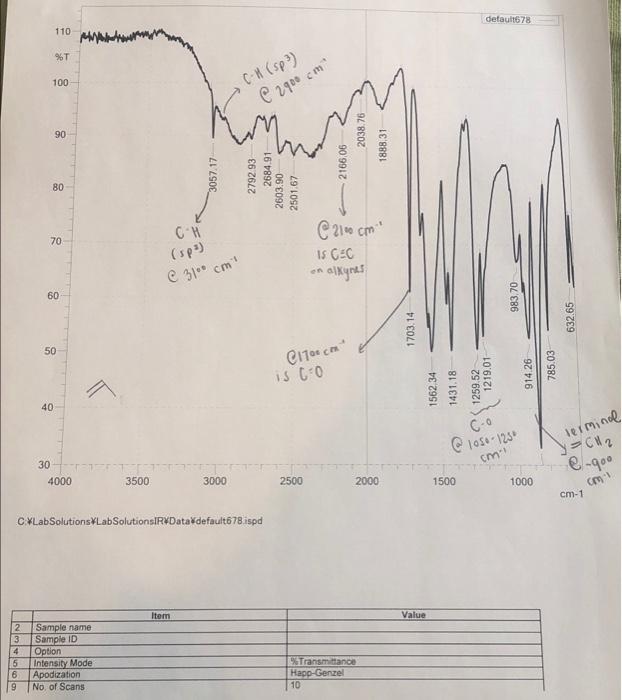 default678
110
%T
100
90
80
70
60
50
40
30
4000
3500
3000
2500
2000
1500
1000
cm-1
C-H (sp³)
@ 2900 cm⁻¹
3057.17
2792.93
2684.91
2603.90
2501.67
2166.06
2038.76
1888.31
C-H
(sp²)
@ 3100 cm⁻¹
@ 2100 cm⁻¹
is C≡C
on alkynes
@ 1700 cm⁻¹
is C=O
1703.14
1562.34
1431.18
1259.52
1219.01
983.70
914.26
785.03
632.65
C-O
@ 1050-1250
cm⁻¹
terminal
=CH2
@ ~900
cm⁻¹
C:¥LabSolutions¥LabSolutionsIR¥Data¥default678.ispd
Item Value
2 Sample name
3 Sample ID
4 Option
5 Intensity Mode %Transmittance
6 Apodization Happ-Genzel
9 No. of Scans 10